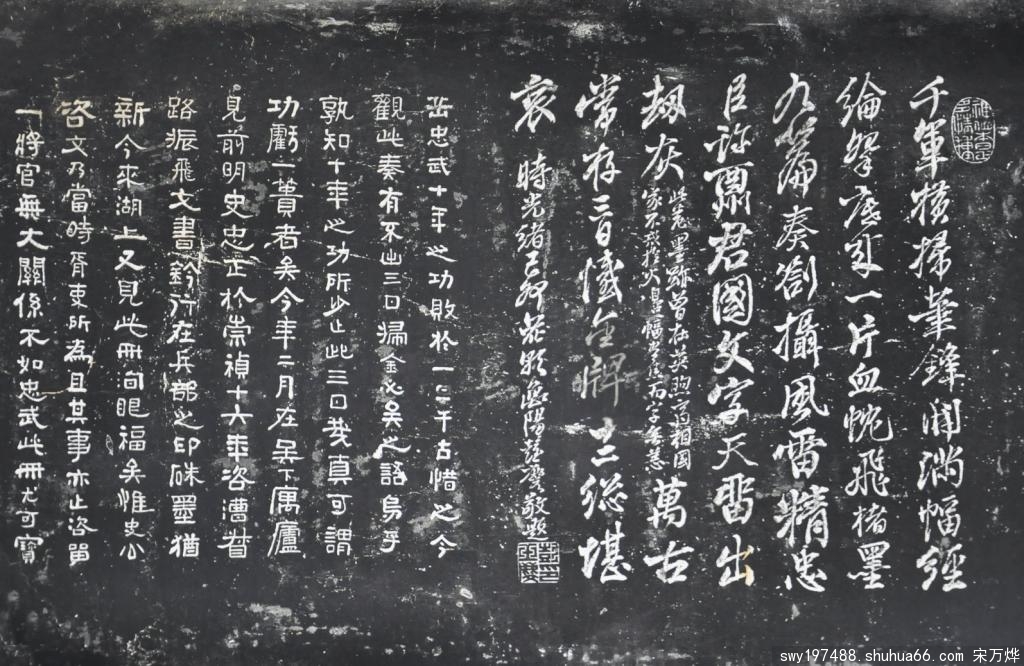 千軍橫掃筆鋒開滿幅經
綸底來一片血忱飛楮墨
九篇奏劄攝風雷精忠
臣許肅君國文字天留出
劫灰
此卷墨跡曾在英煦齋相國
家不戒於火幅而字無恙
萬古
常存三日憾金牌十二總堪
哀
時光緒己卯陽慶敬題
岳忠武十年之功敗於一旦千古惜之今
觀此奏有不出三日掃金必矣之語烏乎
孰知十年之功所少止此三日哉真可謂
功虧一簣者矣今年二月在吳下厲廬
見前明史忠正於崇禎十六年咨漕督
路振飛文書鈐行在兵部之印硃墨猶
新今來湖上又見此冊洵眼福矣惟史公
咨文乃當時胥吏所為且其事亦止咨留
一將官無大關係不如忠武此冊尤可寶
swy197488.shuhua66.com 宋万烨